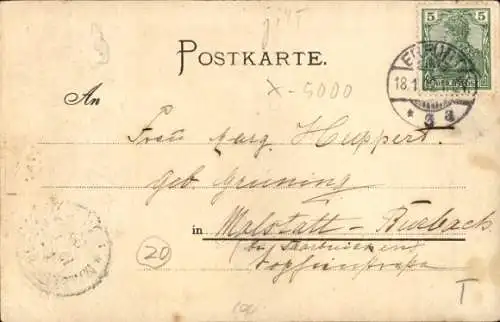 5
POSTKARTE.
18.1
X-5000
An
* 3 a
Frau Marg. Huppert.
geb. Grüning
in Malstatt-Burbach
bei Saarbrücken
Sophienstraße
20
T